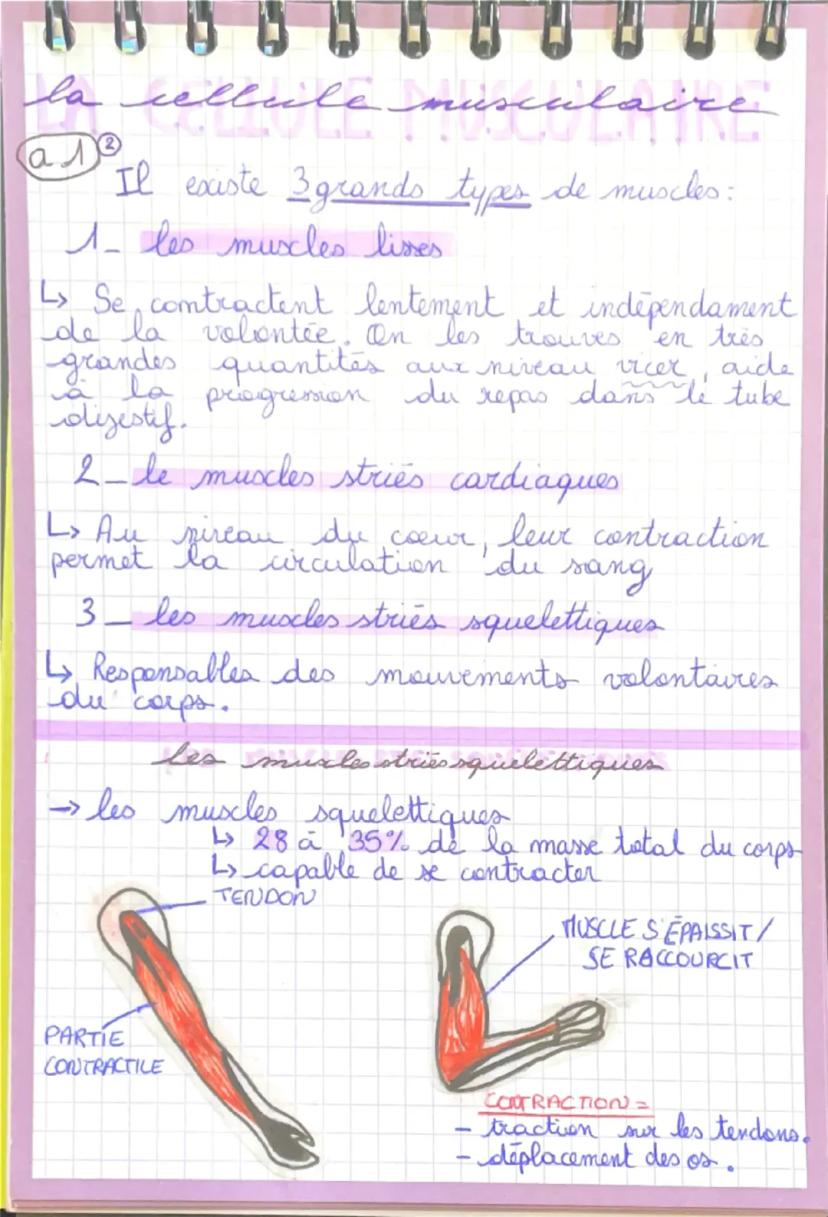 la cellule musculaire
a 1 2
Il existe 3 grands types de muscles :
1_ les muscles lisses
↳ Se contractent lentement et indépendament
de la volontée. On les trouves en très
grandes quantités aux niveau vicer, aide
à la progression du repas dans le tube
digestif.
2_ le muscles striés cardiaques
↳ Au niveau du cœur, leur contraction
permet la circulation du sang
3_ les muscles striés squelettiques
↳ Responsables des mouvements volontaires
du corps.
les muscles striés squelettiques
→ les muscles squelettiques
↳ 28 à 35% de la masse total du corps
↳ capable de se contracter
TENDON
MUSCLE S'ÉPAISSIT /
SE RACCOURCIT
PARTIE
CONTRACTILE
CONTRACTION =
- traction sur les tendons.
- déplacement des os.